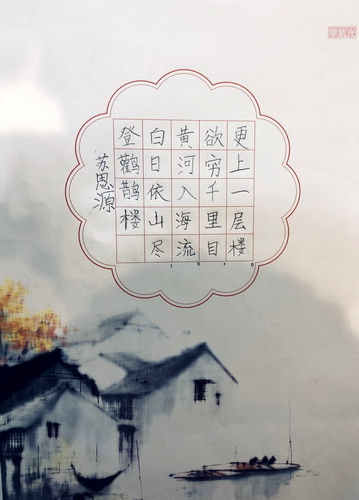 登鹳鹊楼
白日依山尽
黄河入海流
欲穷千里目
更上一层楼
苏恩源